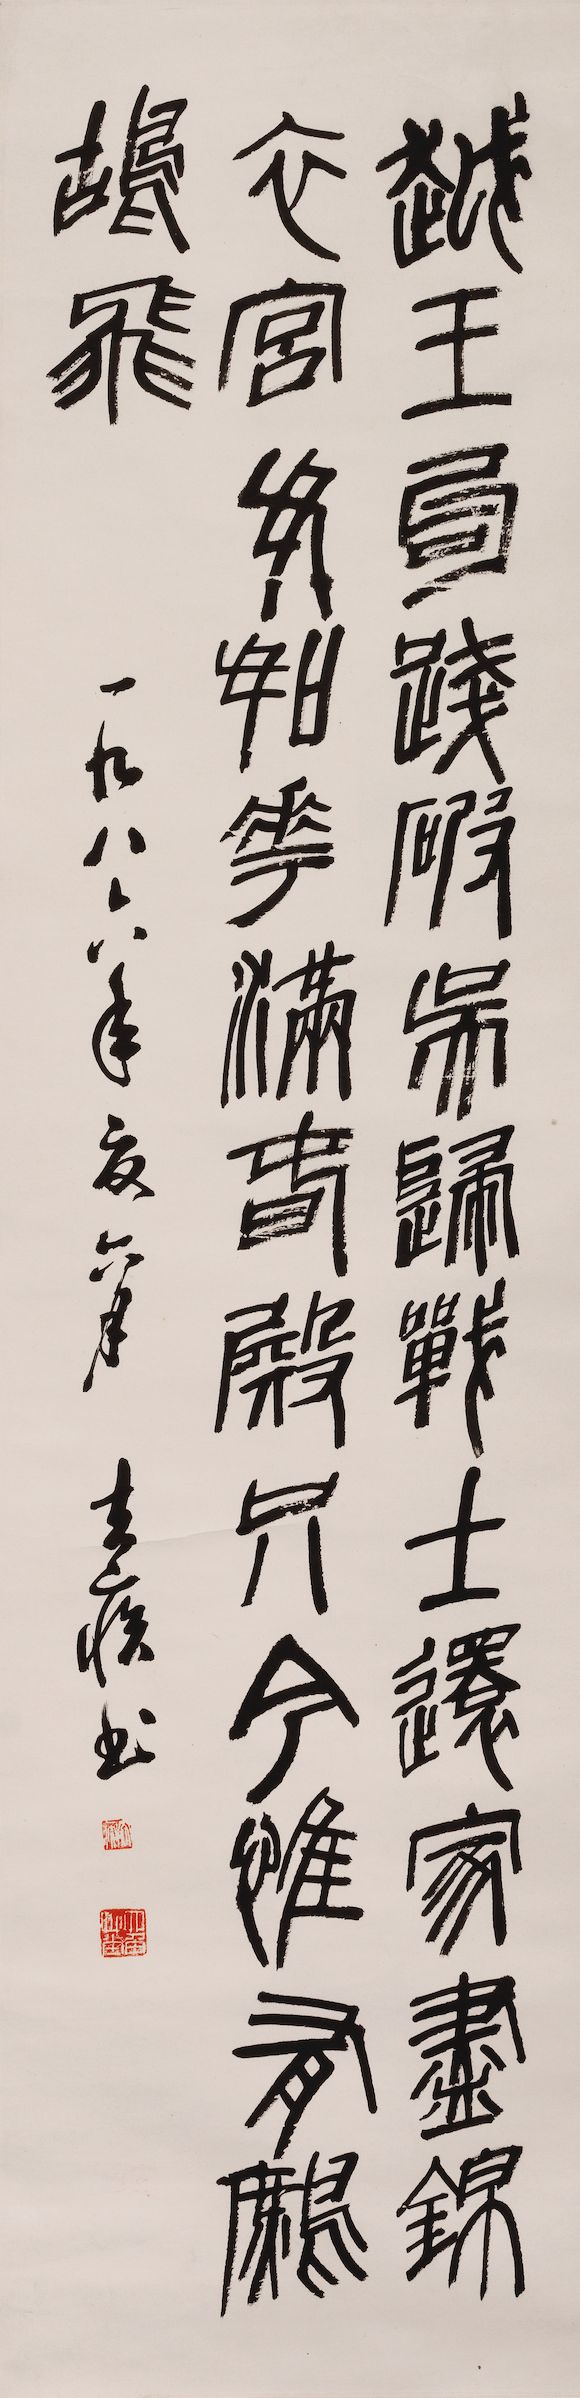 越王句踐破吳歸戰士還家盡錦
衣宮女如花滿春殿只今惟有鷓
鴣飛
一九八六年夏六月 去疾书